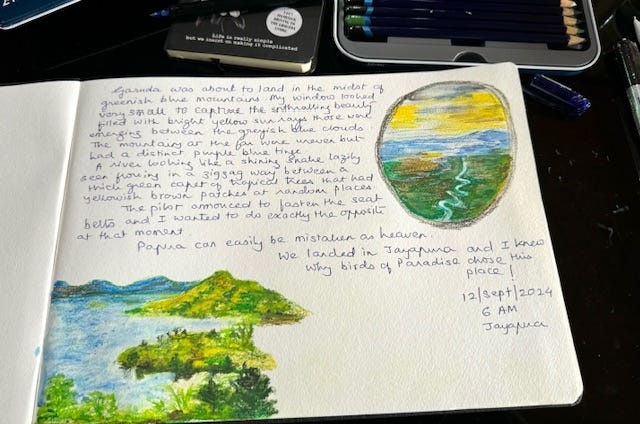 Life is really simple
but we insist on making it complicated
Garuda was about to land in the midst of
greenish blue mountains. My window looked
very small to capture the enthralling beauty
filled with bright yellow sunrays those were
emerging between the greyish blue clouds
The mountains at the far were uneven but
had a distinct purple blue tinge.
A river looking like a shining snake lazily
seen flowing in a zigzag way between a
thick green capet of tropical trees that had
yellowish brown patches at random places.
The pilot announced to fasten the seat
belts and I wanted to do exactly the opposite
at that moment
Papua can easily be mistaken as heaven.
We landed in Jayapura and I knew
why birds of Paradise chose this
place!
12/Sept/2024
6 AM
Jayapura